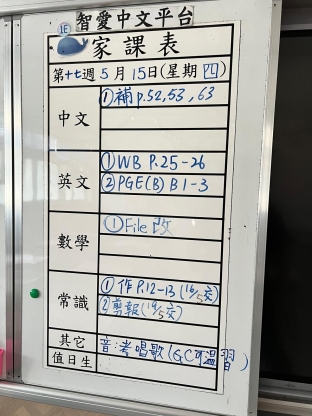 智愛中文平台
1E
家課表
第十七週5月15日(星期四)
中文
①補p.52,53,63
英文
①WB P.25-26
②PGE(B) B1-3
數學
①File改
常識
①作P.12-13(16/5交)
②剪報(19/5交)
其它
音:考唱歌(GC可溫習)
值日生